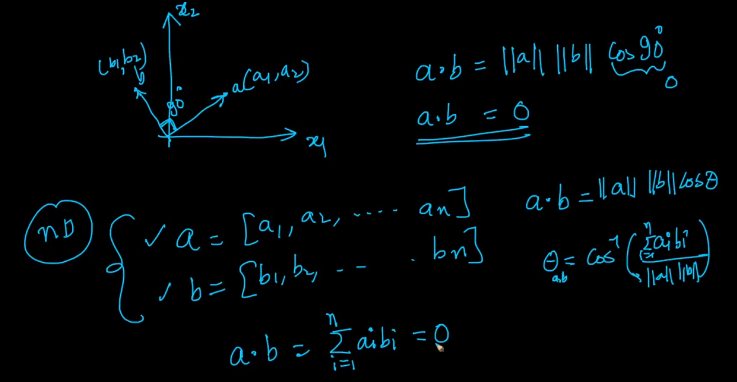 x₂
(b₁, b₂)
b
90°
a(a₁, a₂)
x₁
a·b = ||a|| ||b|| cos 90°
0
a·b = 0
nD
✓ a = [a₁, a₂, ..... aₙ]
✓ b = [b₁, b₂, .. . . bₙ]
a·b = ||a|| ||b|| cos θ
θ_{a,b} = cos⁻¹ (∑_{i=1}^{n} aᵢbᵢ / ||a|| ||b||)
a·b = ∑_{i=1}^{n} aᵢbᵢ = 0